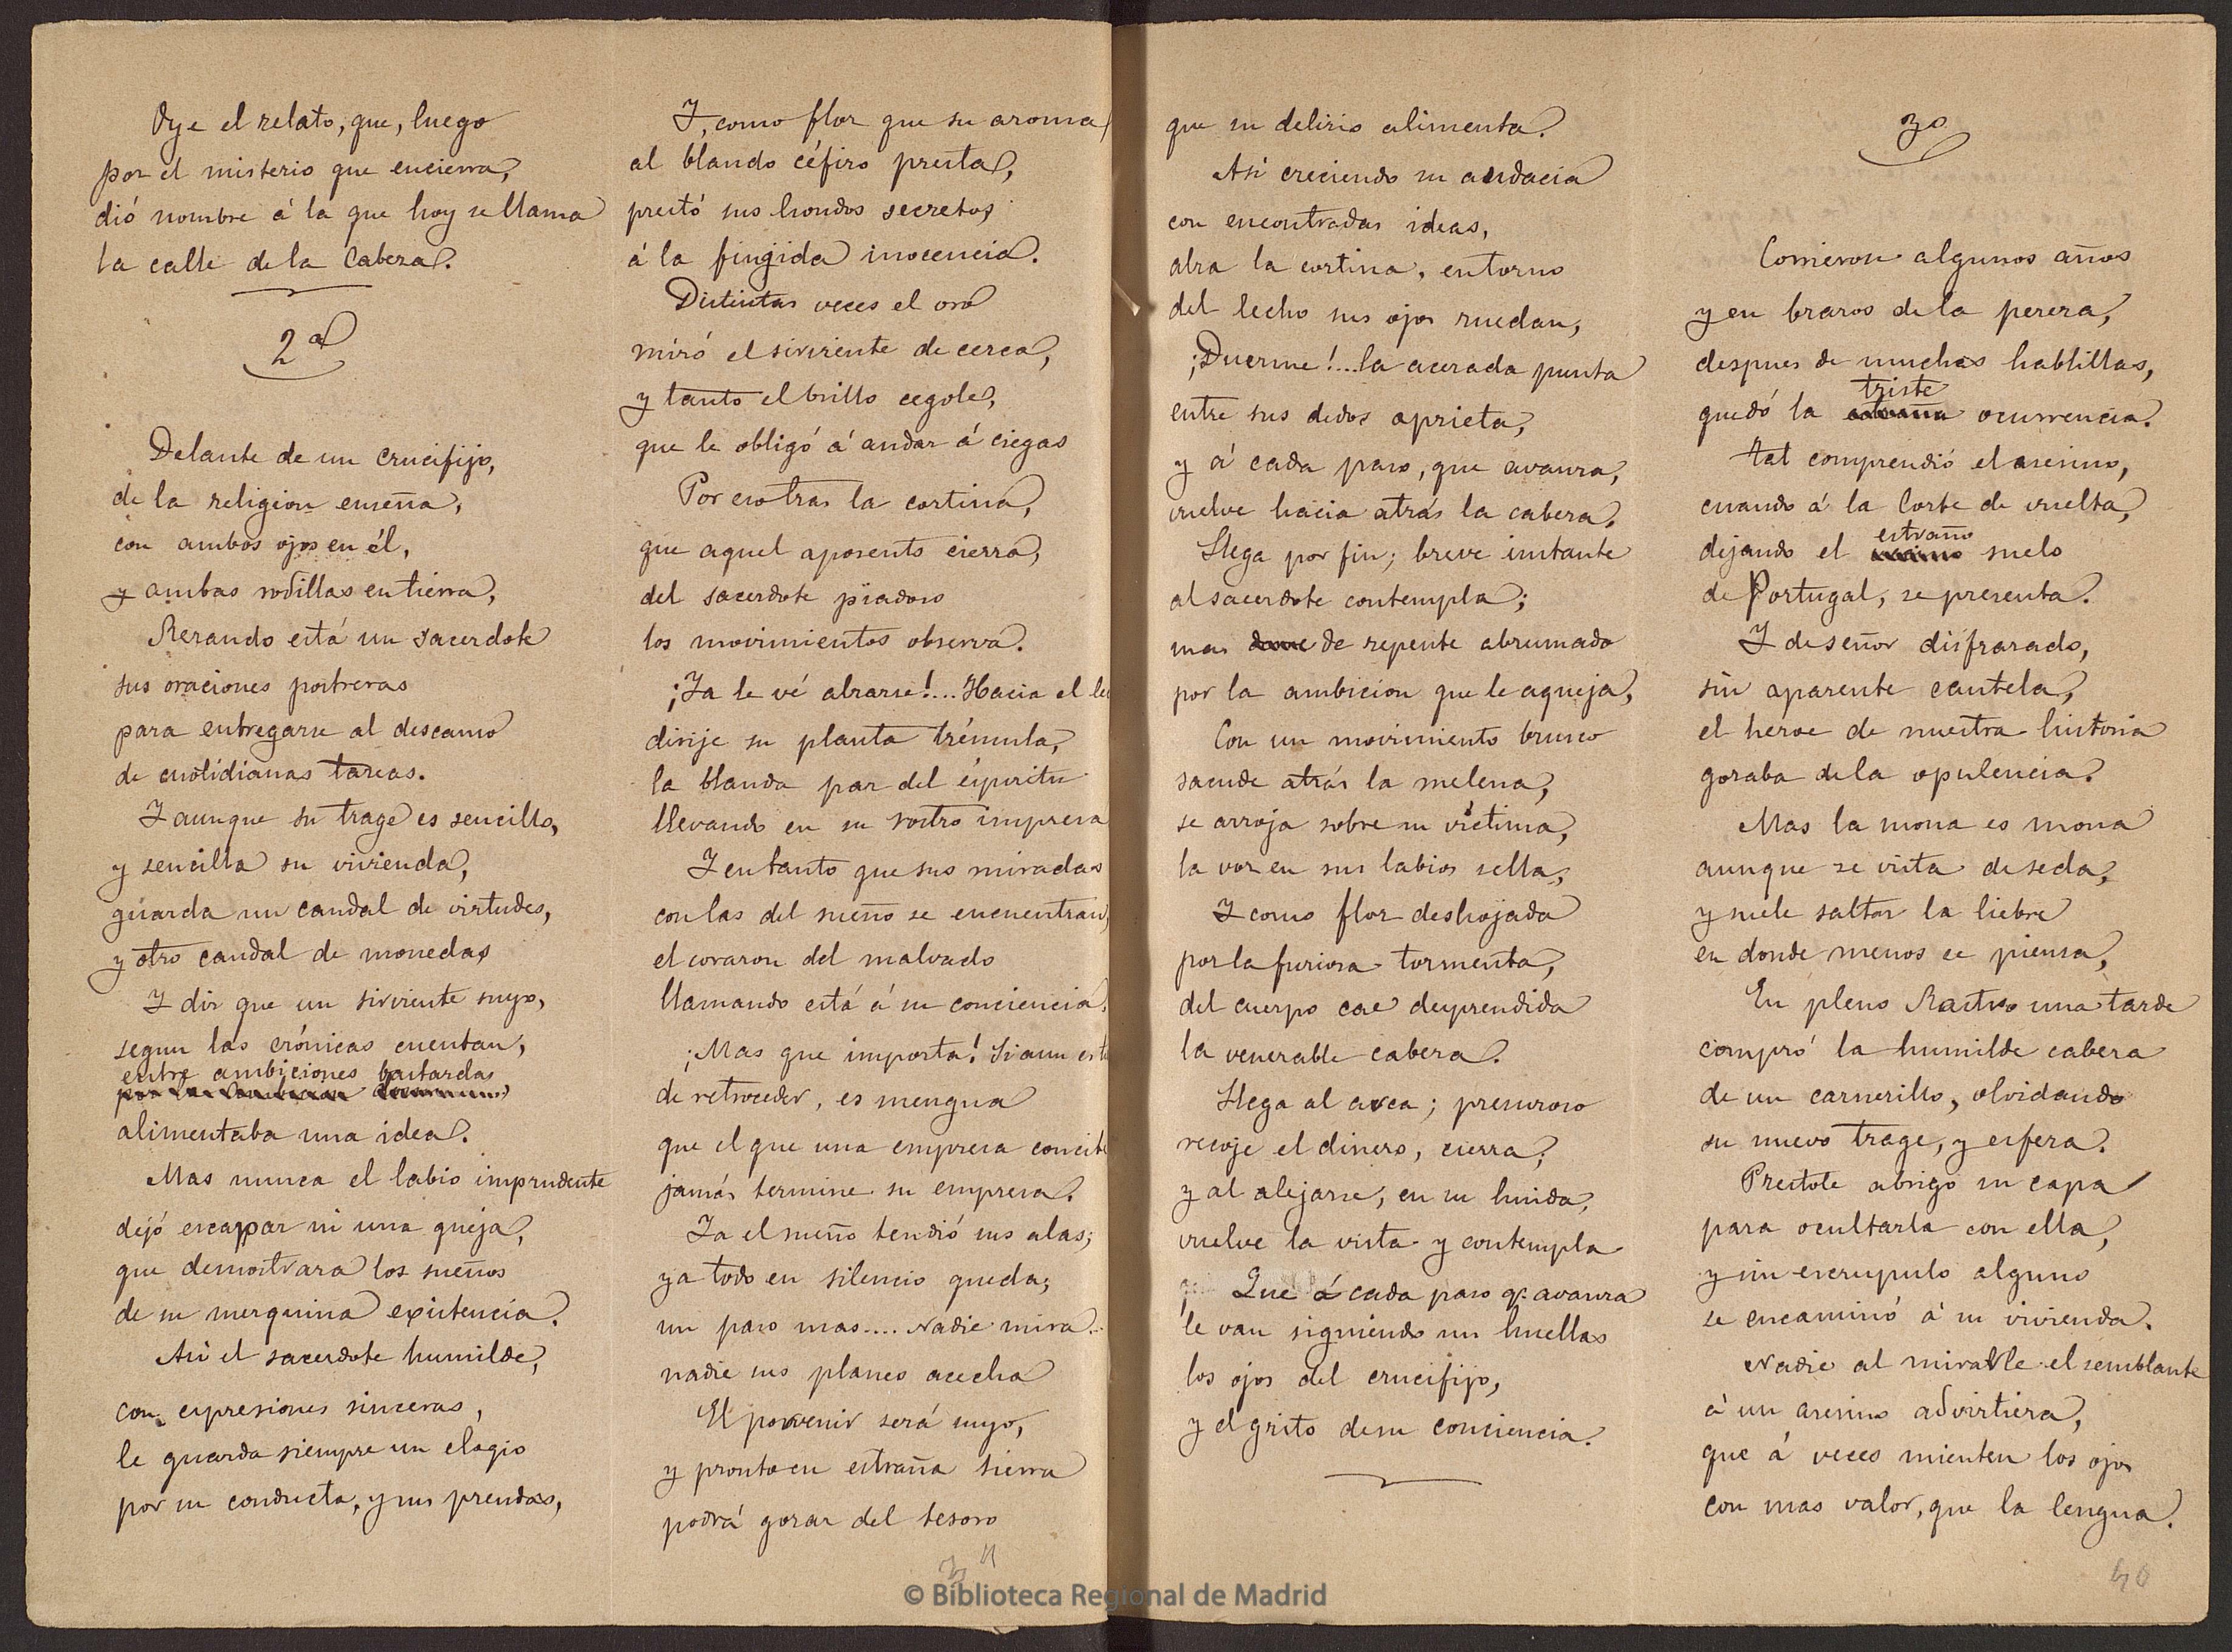 Oye el relato, que, luego
por el misterio que encierra,
dió nombre á la que hoy se llama
la calle de la Cabeza.
2ª
Delante de un crucifijo,
de la religion enseña,
con ambos ojos en él,
y ambas rodillas en tierra,
Rezando está un sacerdote
sus oraciones postreras
para entregarse al descanso
de cuotidianas tareas.
Y aunque su trage es sencillo,
y sencilla su vivienda,
guarda un caudal de virtudes,
y otro caudal de monedas
Y diz que un sirviente suyo,
segun las crónicas cuentan,
entre ambiciones bastardas
alimentaba una idea.
Mas nunca el labio imprudente
dejó escapar ni una queja,
que demostrara los sueños
de su mezquina existencia.
Asi el sacerdote humilde,
con espresiones sinceras,
le guarda siempre un elogio
por su conducta, y sus prendas,
Y, como flor que su aroma
al blando céfiro presta,
prestó sus hondos secretos
á la fingida inocencia.
Distintas veces el oro
miró el sirviente de cerca,
y tanto el brillo cegole,
que le obligó á andar á ciegas
Por eso tras la cortina,
que aquel aposento cierra,
del sacerdote piadoso
los movimientos observa.
¡Ya le vé alzarse!... Hacia el le
dirije su planta trémula,
la blanda paz del éspiritu
llevando en su rostro impresa
Y en tanto que sus miradas
con las del sueño se encuentran,
el corazon del malvado
llamando está á su conciencia.
¡Mas que importa! Si aun es t
de retroceder, es mengua
que el que una empresa concib
jamás termine su empresa.
Ya el sueño tendió sus alas;
ya todo en silencio queda;
un paso mas.... Nadie mira...
nadie sus planes acecha
El porvenir será suyo,
y pronto en estraña tierra
podrá gozar del tesoro
que su delirio alimenta.
Asi creciendo su audacia
con encontradas ideas,
alza la cortina, entorno
del lecho sus ojos ruedan,
¡Duerme!... la acerada punta
entre sus dedos aprieta,
y á cada paso, que avanza,
vuelve hácia atrás la cabeza.
Llega por fin; breve instante
al sacerdote contempla;
mas de repente abrumado
por la ambicion que le aqueja,
Con un movimiento brusco
sacude atrás la melena,
se arroja sobre su víctima,
la voz en sus labios sella,
Y como flor deshojada
por la furiosa tormenta,
del cuerpo cae desprendida
la venerable cabeza.
Llega al arca; presuroso
recoje el dinero, cierra;
y al alejarse, en su huida,
vuelve la vista y contempla
Que á cada paso q. avanza
le van siguiendo sus huellas
los ojos del crucifijo,
y el grito de su conciencia.
3º
Corrieron algunos años
y en brazos de la pereza,
despues de muchas hablillas,
quedó la triste ocurrencia.
tal comprendió el asesino,
cuando á la Corte de vuelta,
dejando el estraño suelo
de Portugal, se presenta.
Y de señor disfrazado,
sin aparente cautela,
el heroe de nuestra historia
gozaba de la opulencia.
Mas la mona es mona
aunque se vista de seda,
y suele saltar la liebre
en donde menos se piensa,
En pleno Rastro una tarde
compró la humilde cabeza
de un carnerillo, olvidando
su nuevo trage, y esfera.
Prestole abrigo su capa
para ocultarla con ella,
y sin escrupulo alguno
se encaminó á su vivienda.
Nadie al mirarle el semblante
á un asesino advirtiera,
que á veces mienten los ojos
con mas valor, que la lengua.
40
© Biblioteca Regional de Madrid